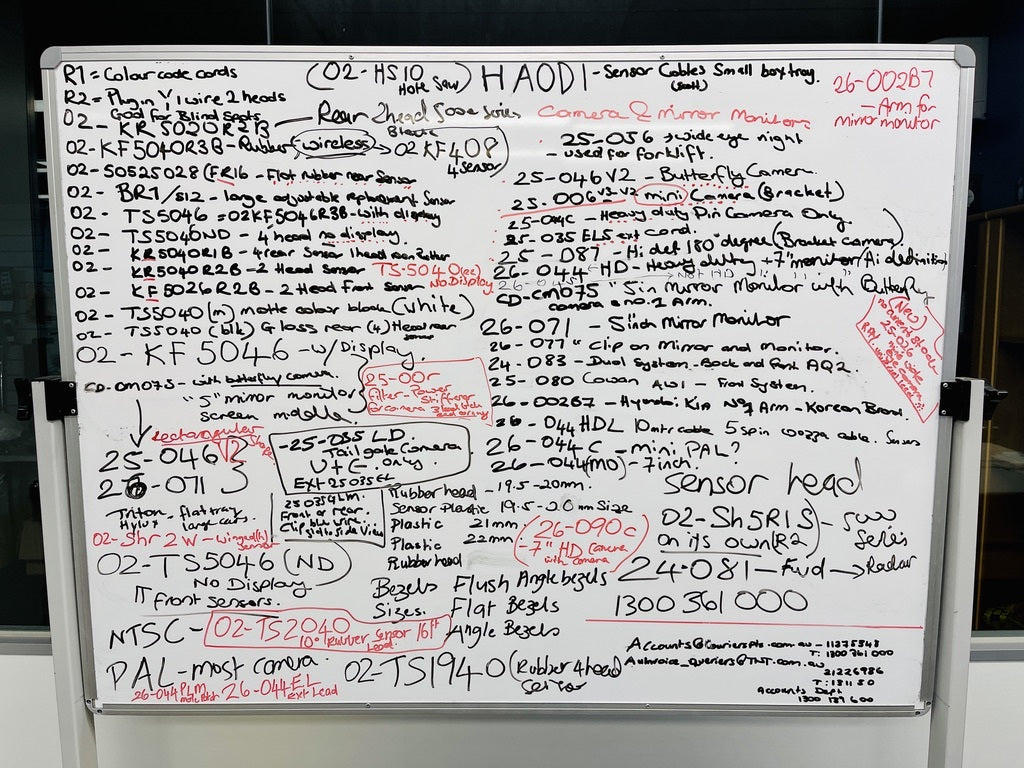 R1 = Colour code cords
R2 = Plug in V 1 wire 2 heads
Good for Blind Spots
02 - KR5020R2B — Rear 2head 5000 series
Black
02 - KF5040R3B - Rubber (wireless) → 02 KF408
4 sensor
02 - 50525028 (FR16 - Flat rubber rear sensor
02 - BR1/S12 - large adjustable replacement Sensor
02 - TS5046 = 02KF5046R3B - with display
02 - TS5040ND - 4 head no display
02 - KR5040R1B - 4 rear sensor 1 head
02 - KR5040R2B - 2 Head Sensor TS-5040
NO Display
02 - KF5026R2B - 2 Head Front Sensor
02 - TS5040(m) matte colour black (white)
02 - TS5040 (blk) Gloss rear (4) Head rear
sensor
02 - KF5046 - w/Display
CD-CM075 - with butterfly camera
"5" mirror monitor
screen middle
25-00r
filter - Power
for camera
rectangular
Shape
25-046 V2
26-071
-25-035 LD
Tail gate Camera
UTE only
Ext 25035EL
25035LM
Front or rear.
Clip side View
Triton - flat tray
Hylux large cars.
02-Shr2W - winged(h)
Sensor
02-TS5046 (ND)
No Display
IT front sensors.
NTSC - 02-TS2040
10" Rubber Sensor 16ft
Lead
PAL - most camera.
26-044PLM 26-044EL
ext Lead
(02-HS10
Hole Saw)
HAODI - Sensor Cables Small box tray.
26-002B7
- Arm for
mirror monitor
Camera & mirror Monitors
25-056 → wide eye night
- used for forklift.
25-046V2 - Butterfly Camera
25-006 V3-V2 mini Camera (Bracket)
25-011C - Heavy duty Pin Camera Only
25-035 ELS ext cord.
25-087 - Hi def 180° degree (Bracket camera)
26-044 - HD - Heavy duty + 7" monitor/Ai definition
NOT HD
CD-CM075 "5in Mirror Monitor with Butterfly
camera & no.1 Arm.
(New)
26-071 - 5"inch Mirror Monitor
26-077 " Clip on Mirror and Monitor.
24-083 - Dual System - Back and Front AQ2
25-080 Cowan AW1 - Front System.
26-002B7 - Hyundai Kia No9 Arm - Korean Brand.
26-044HDL 10mtr cable 5 spin woozza cable. Sensors
26-044-C - mini PAL?
26-044(MO) - 7inch.
Rubber head - 19.5-20mm.
Sensor Plastic 19.5-20mm Size
Plastic 21mm
Plastic 22mm
Rubber head
26-090c
- 7" HD Camera
with camera
Sensor head
02-Sh5R1S - 5000
Series
on its own (R2)
24-081 - Fwd → Radar
1300 361 000
Bezels Flush Angle bezels
Sizes. Flat Bezels
Angle Bezels
02-TS1940 (Rubber 4 head
Sensor
Accounts@Couriersplz.com.au - 11375548
T: 1300 361 000
@TNT.com.au
21226986
T: 1311 50
Accounts Dept